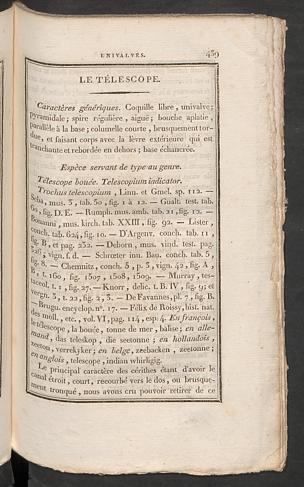 UNIVALVES. 439
LE TÉLESCOPE.
Caractères génériques. Coquille libre, univalve;
pyramidale; spire régulière, aiguë; bouche aplatie,
parallèle à la base; columelle courte, brusquement tor-
due, et faisant corps avec la lèvre extérieure qui est
tranchante et rebordée en dehors; base échancrée.
Espèce servant de type au genre.
Télescope bouée. Telescopium indicator.
Trochus telescopium, Linn. et Gmel. sp. 112. —
Seba, mus. 3, tab. 50, fig. 1 à 12. — Gualt. test. tab.
60, fig. D. E. — Rumph. mus. amb. tab. 21, fig. 12. —
Bonanni, mus. kirch. tab. XXIII, fig. 92. — Lister,
conch. tab. 624, fig. 10. — D'Argenv. conch. tab. 11,
fig. B, et pag. 252. — Deborn, mus. vind. test. pag.
326, vign. f. d. — Schrœter inn. Bau. conch. tab. 5,
fig. 8. — Chemnitz, conch. 5, p. 3, vign. 42, fig. A,
B, t. 160, fig. 1507, 1508, 1509. — Murray, tes-
taceol. t. 1, fig. 27. — Knorr, delic. t. B. IV, fig. 9; et
vergn. 3, t. 22, fig. 2, 3. — De Favannes, pl. 7, fig. B.
— Brugu. encyclop. n°. 17. — Félix de Roissy, hist. nat.
des moll., etc., vol. VI, pag. 114, esp. 4. En françois,
le télescope, la bouée, tonne de mer, balise; en alle-
mand, das teleskop, die seetonne; en hollandois,
zeeton, verrekyker; en belge, zeebacken, zeetonne;
en anglois, telescope, indian whirligig.
Le principal caractère des cérithes étant d'avoir le
canal étroit, court, recourbé vers le dos, ou brusque-
ment tronqué, nous avons cru pouvoir retirer de ce